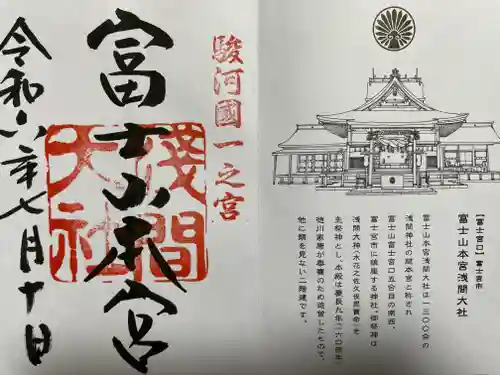 駿河國一之宮
富士山本宮
淺間大社
令和六年七月十日
【富士宮口】富士宮市
富士山本宮浅間大社
富士山本宮浅間大社は一三〇〇余の
浅間神社の総本宮と称され
富士山富士宮口五合目の南西、
富士宮市に鎮座する神社。御祭神は
浅間大神(木花之佐久夜毘賣命)を
主祭神とし、本殿は慶長九年(一六〇四年)
徳川家康が奉賽のため造営したもので、
他に類を見ない二階建です。